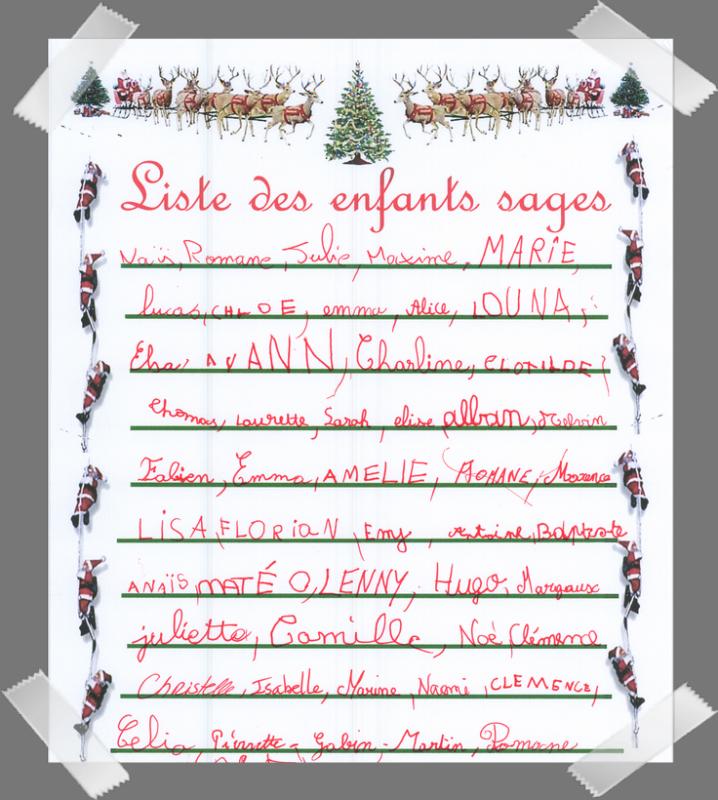 Liste des enfants sages
Naïs, Romane, Julie, Maxime, MARIE,
lucas, CHLOE, emma, Alice, LOUNA,
Elsa, AVANN, Charline, CLOTILDE,
Thomas, Laurette, Sarah, elise, alban, Melvin
Fabien, Emma, AMELIE, ROMANE, Maxence
LiSA, FLORiaN, Emy, Antoine, Baptiste
ANAÏS, MATÉO, LENNY, Hugo, Margaux
juliette, Camille, Noé, Clémence
Christelle, Isabelle, Marine, Naomi, CLEMENCE,
Celia, Pierrette - Gabin - Martin, Romane